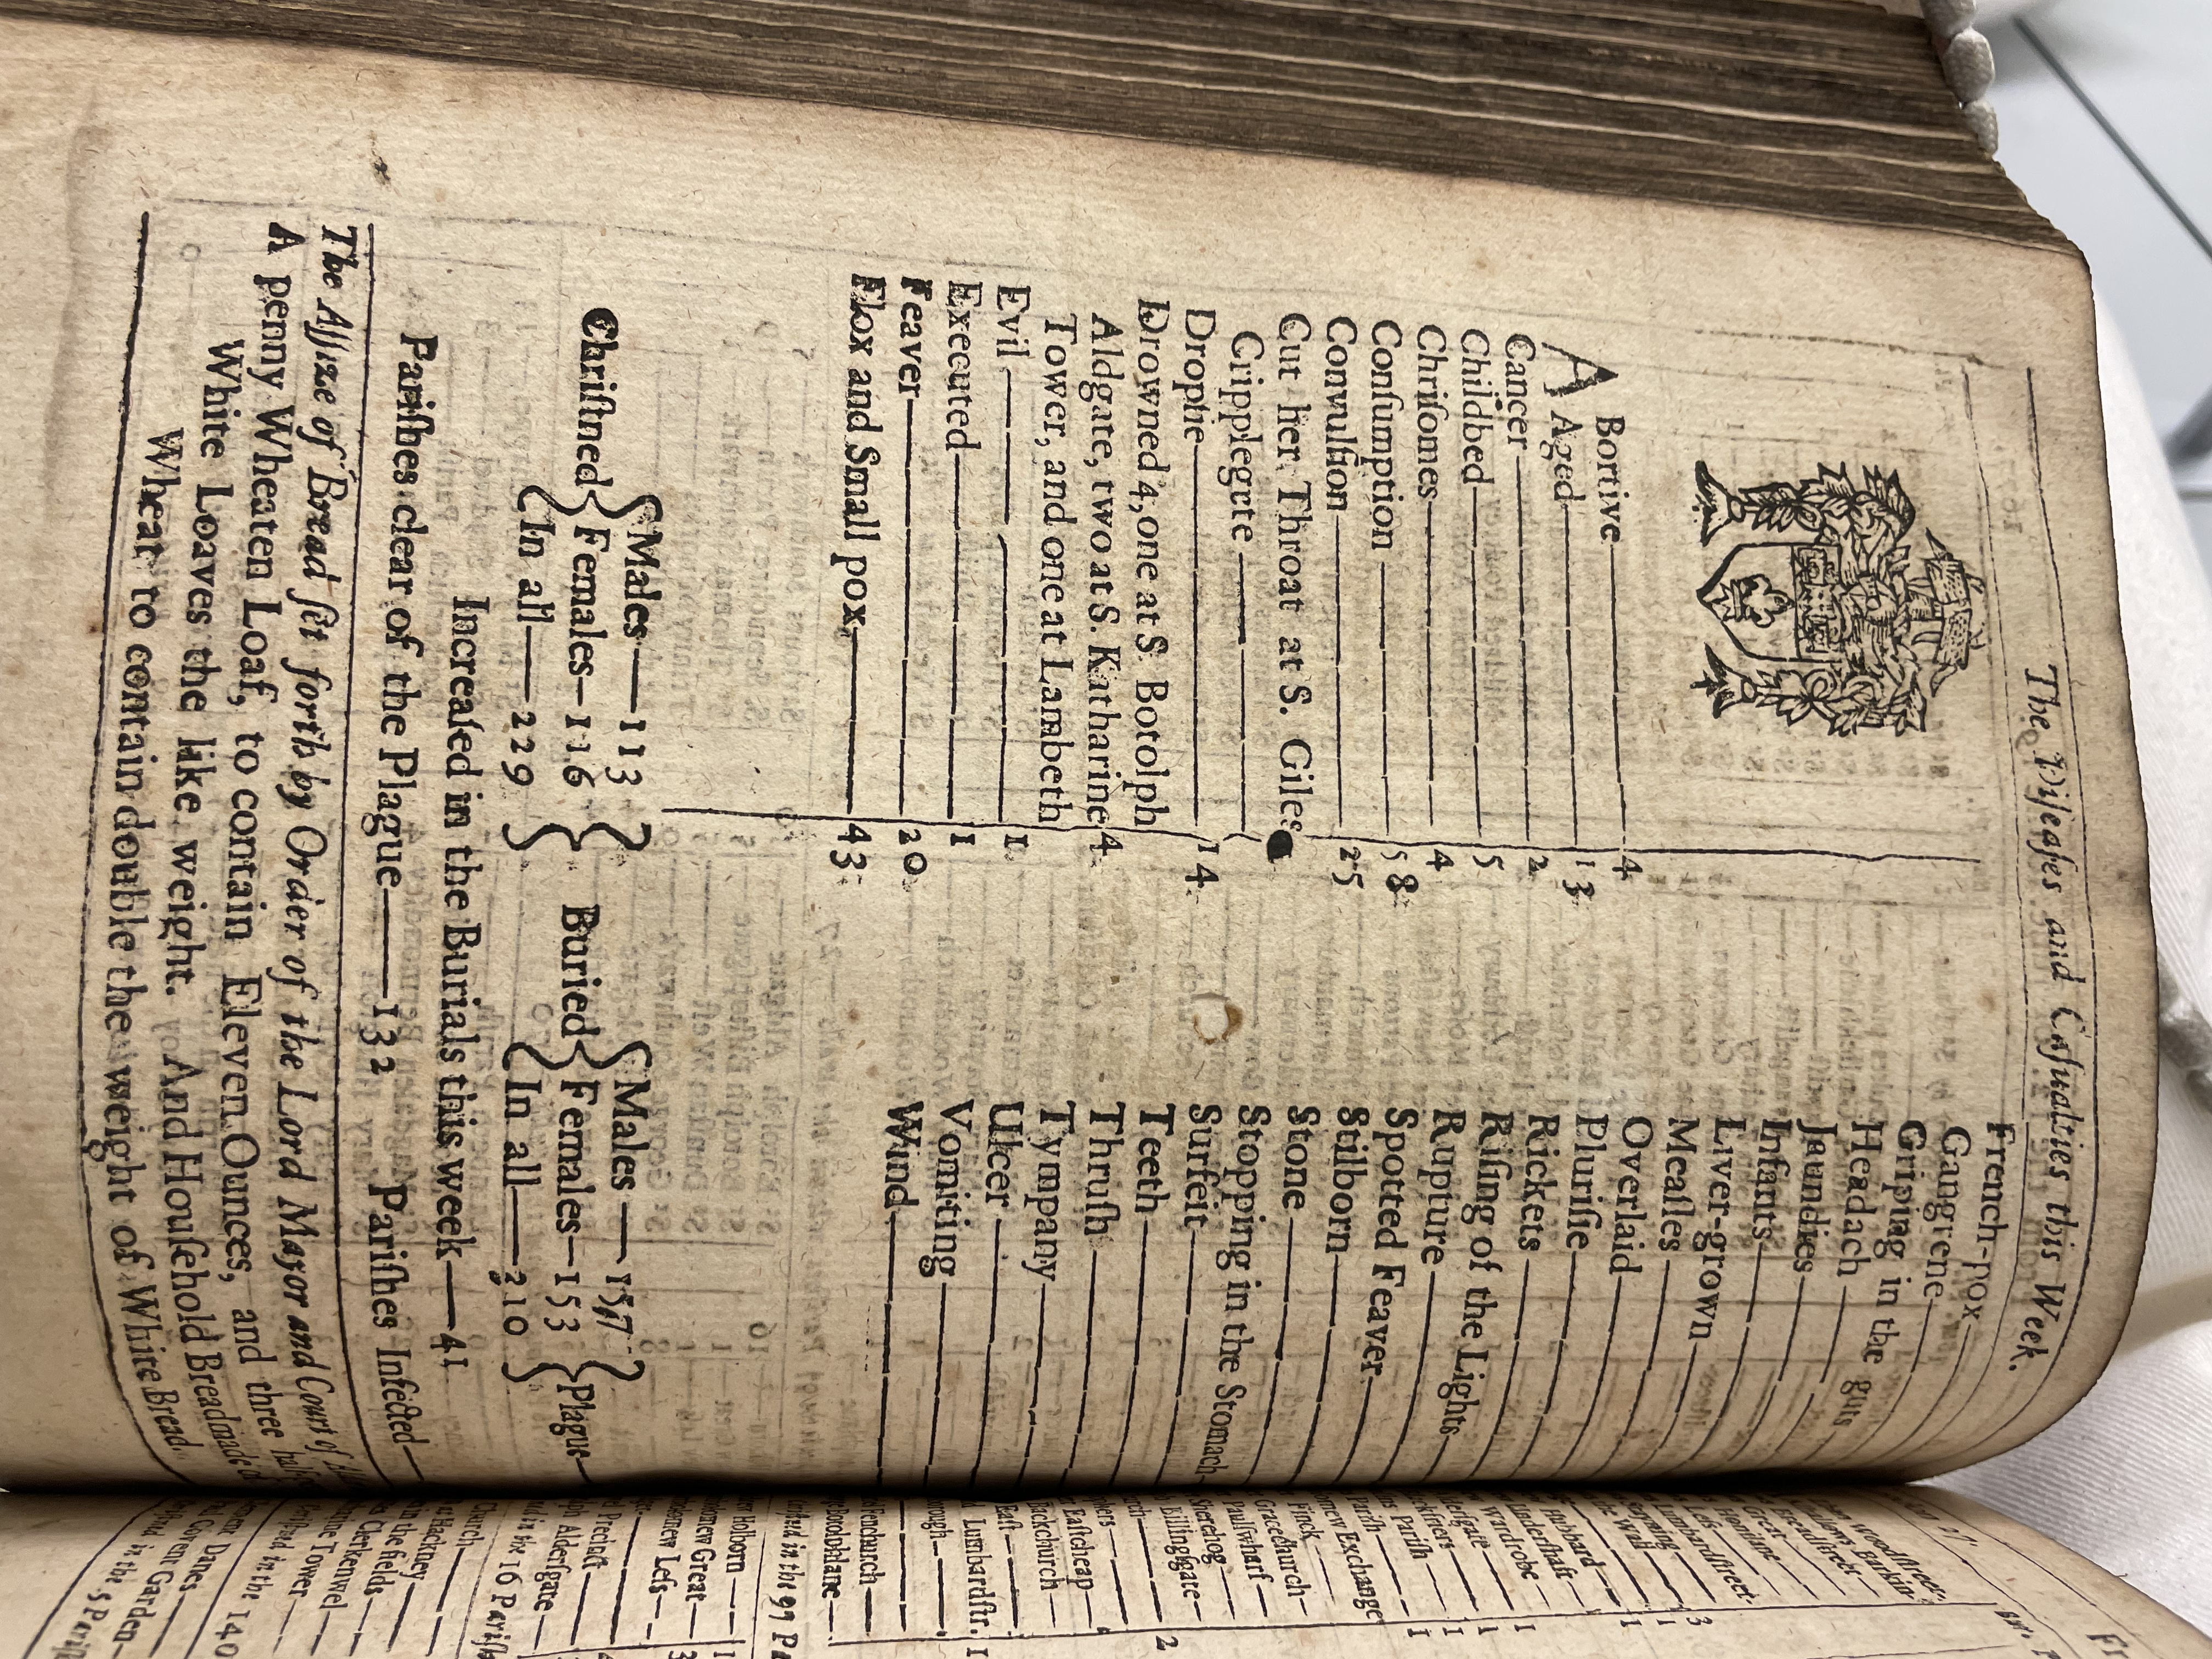 The Diſeaſes and Caſualties this Week.
ABortive 4
Aged 13
Cancer 2
Childbed 5
Chriſomes 4
Conſumption 58
Convulſion 25
Cut her Throat at S. Giles
Cripplegrte
Dropſie 14
Drowned 4, one at S. Botolph
Aldgate, two at S. Katharine 4
Tower, and one at Lambeth
Evil 1
Executed 1
Feaver 20
Flox and Small pox 43
French-pox
Gangrene
Griping in the guts
Headach
Jaundies
Infants
Liver-grown
Meaſles
Overlaid
Pluriſie
Rickets
Riſing of the Lights
Rupture
Spotted Feaver
Stilborn
Stone
Stopping in the Stomach
Surfeit
Teeth
Thruſh
Tympany
Ulcer
Vomiting
Wind
Chriſtned { Males 113
Females 116
In all 229 }
Buried { Males 157
Females 153
In all 310 } Plague
Increaſed in the Burials this week 41
Pariſhes clear of the Plague 132 Pariſhes Infected
The Aſſize of Bread ſet forth by Order of the Lord Mayor and Court of
A penny Wheaten Loaf, to contain Eleven Ounces, and three half
White Loaves the like weight. And Houſehold Bread made of
Wheat to contain double the weight of White Bread.
Woodſtreet
Barking
Breadſtreet
Great
Honilane
Leſs
Lumbardſtreet
Hubbard
Underſhaft
Wardrobe
Pariſh
Exchange
Finck
Gracechurch
Paulſwharf
Sherehog
Billingſgate 2
Eaſtcheap
Backchurch
Eaſt
Lumbardſtr. 1
Fenchurch
in the 97
Holborn
Great
Leſs
Precinct
Alderſgate
in the 16
Church
Hackney
in the fields
Clerkenwel
Tower
in the 14
Danes
Coven Garden
in the 5